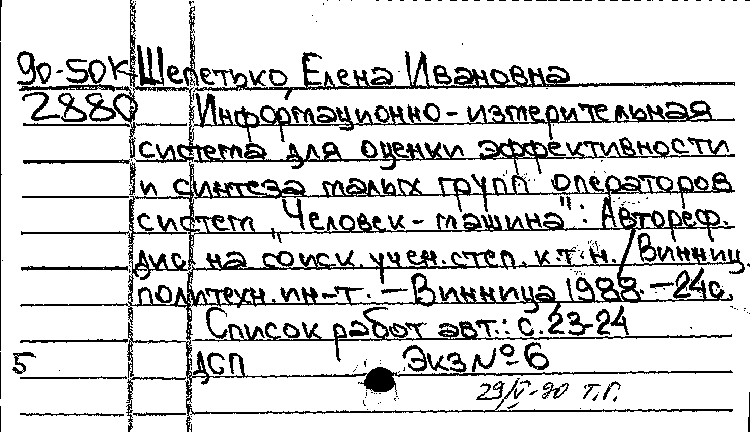 90-50К Шепетько, Елена Ивановна
2880 Информационно-измерительная
система для оценки эффективности
и синтеза малых групп операторов
систем „Человек-машина": Автореф.
дис. на соиск. учен. степ. к.т.н. / Винниц.
политехн. ин-т. — Винница, 1988. — 24с.
Список работ авт.: с. 23-24
5 ДСП Экз № 6
29/V-90 Т.Г.